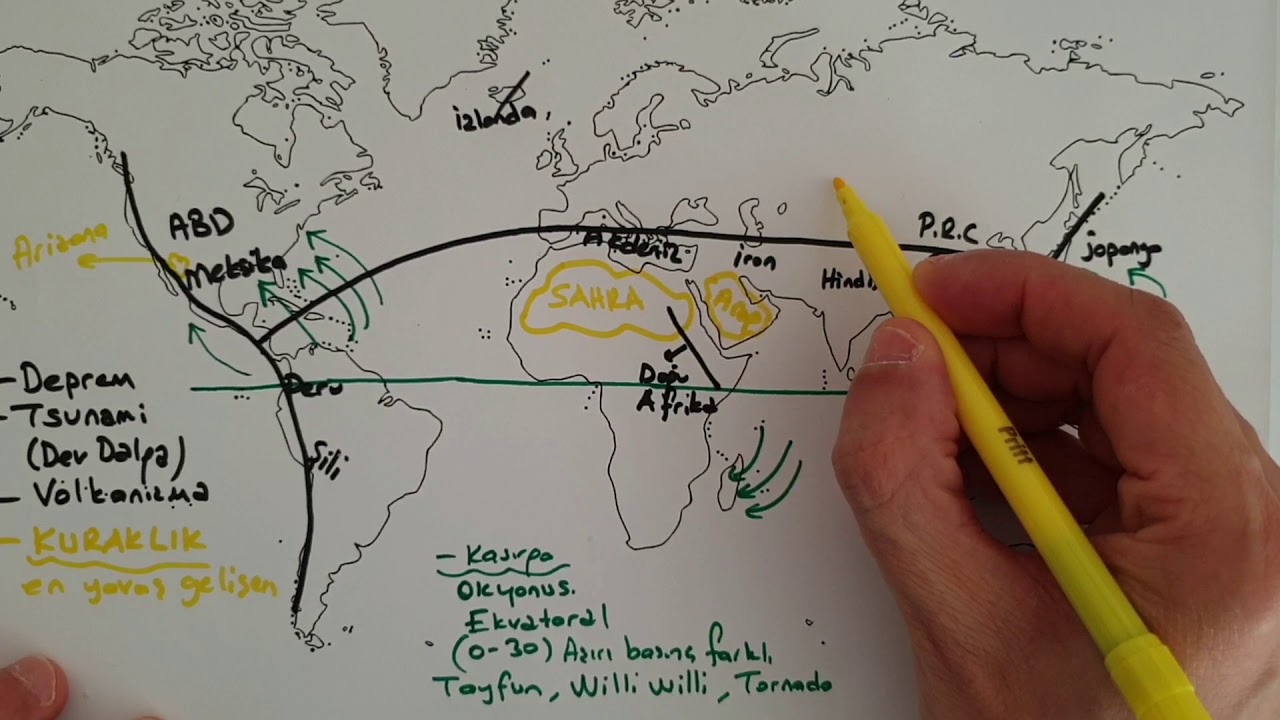 izlanda
ABD
Arizona
Meksika
Akdeniz
iran
P.R.C
Japonya
Hindis
SAHRA
Arap
Peru
Doğu
Afrika
Şili
- Deprem
- Tsunami
(Dev Dalga)
- Volkanizma
- KURAKLIK
en yavaş gelişen
- Kasırga
Okyanus.
Ekvatoral
(0-30) Aşırı basınç farklı
Tayfun, Willi willi, Tornado
Pritt